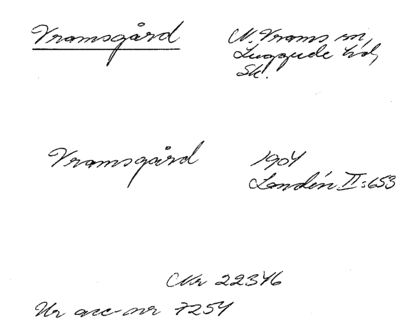 Vramsgård
N. Vrams sn,
Luggude hd,
Sk.
Vramsgård
1904
Landén II:653
CNr 22346
Ur acc-nr 7254